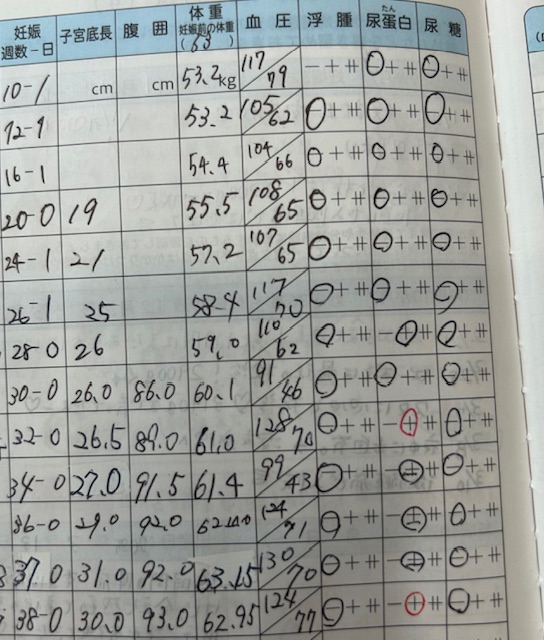 妊娠週数-日 子宮底長 腹囲 体重 妊娠前の体重 血圧 浮腫 尿蛋白 尿糖
10-1 cm cm 53.2kg 117/79 - + ⧺ - + ⧺ - + ⧺
12-1 53.2 105/62 - + ⧺ - + ⧺ - + ⧺
16-1 54.4 104/66 - + ⧺ - + ⧺ - + ⧺
20-0 19 55.5 108/65 - + ⧺ - + ⧺ - + ⧺
24-1 21 57.2 107/65 - + ⧺ - + ⧺ - + ⧺
26-1 25 58.4 117/70 - + ⧺ - + ⧺ - + ⧺
28-0 26 59.0 110/62 - + ⧺ - + ⧺ - + ⧺
30-0 26.0 86.0 60.1 91/46 - + ⧺ - + ⧺ - + ⧺
32-0 26.5 89.0 61.0 128/70 - + ⧺ - + ⧺ - + ⧺
34-0 27.0 91.5 61.4 99/43 - + ⧺ - + ⧺ - + ⧺
36-0 29.0 92.0 124/71 - + ⧺ - + ⧺ - + ⧺
37-0 31.0 92.0 63.15 130/70 - + ⧺ - + ⧺ - + ⧺
38-0 30.0 93.0 62.95 124/77 - + ⧺ - + ⧺ - + ⧺